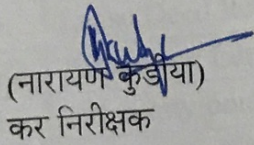 (नारायण कुडीया)
कर निरीक्षक